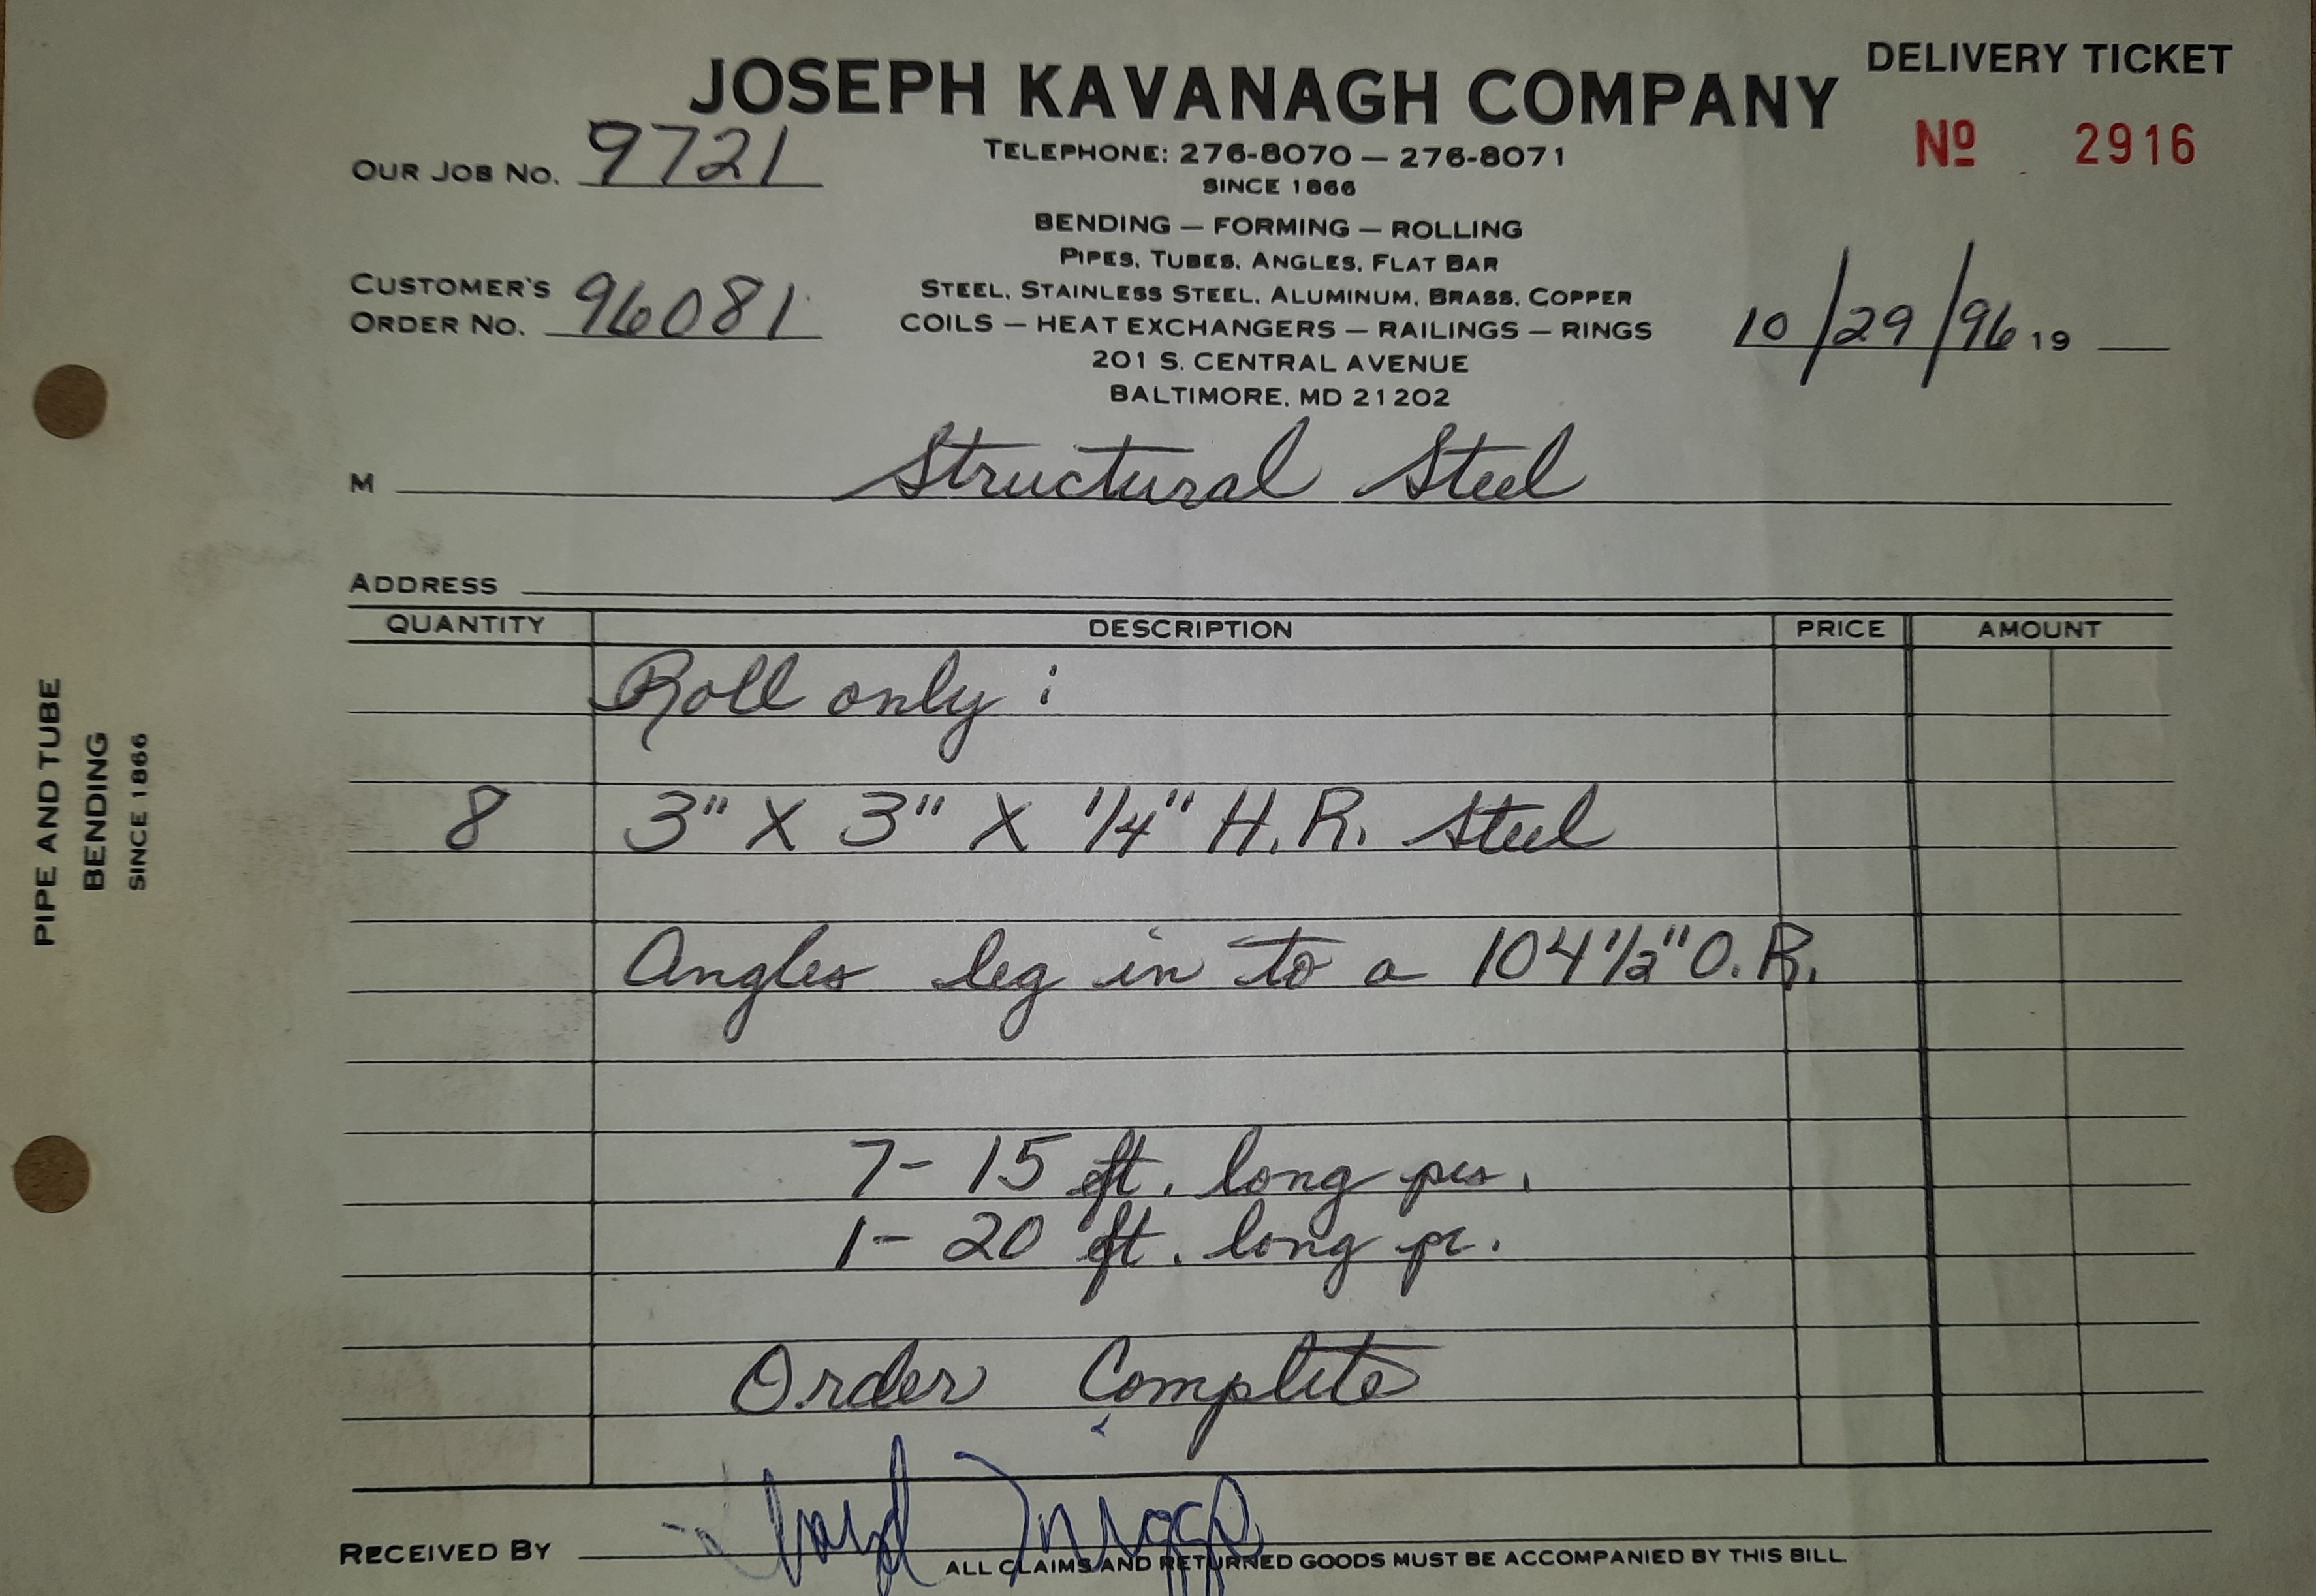 DELIVERY TICKET
JOSEPH KAVANAGH COMPANY
Nº 2916
OUR JOB NO. 9721
TELEPHONE: 276-8070 — 276-8071
SINCE 1866
BENDING — FORMING — ROLLING
PIPES, TUBES, ANGLES, FLAT BAR
CUSTOMER'S
ORDER NO. 96081
STEEL, STAINLESS STEEL, ALUMINUM, BRASS, COPPER
COILS — HEAT EXCHANGERS — RAILINGS — RINGS
10/29/96 19
201 S. CENTRAL AVENUE
BALTIMORE, MD 21202
M Structural Steel
ADDRESS
QUANTITY DESCRIPTION PRICE AMOUNT
Roll only :
8 3" X 3" X 1/4" H.R. Steel
Angles leg in to a 104 1/2" O.R.
7- 15 ft. long pcs.
1- 20 ft. long pc.
Order Complete
RECEIVED BY
ALL CLAIMS AND RETURNED GOODS MUST BE ACCOMPANIED BY THIS BILL.
PIPE AND TUBE
BENDING
SINCE 1866